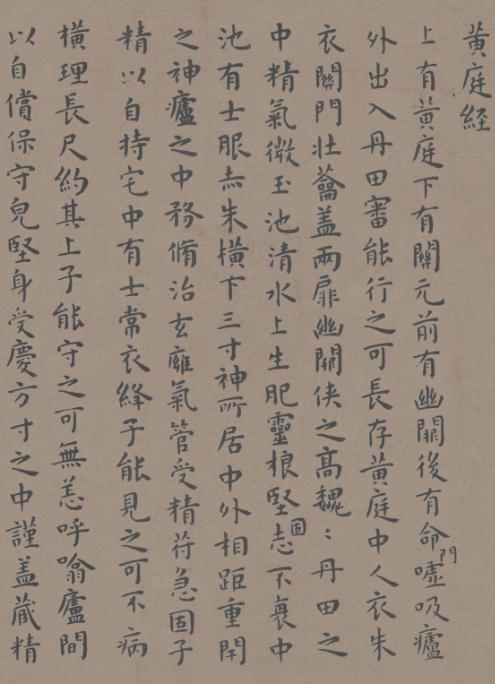 黃庭經
上有黃庭下有關元前有幽關後有命門噓吸廬
外出入丹田審能行之可長存黃庭中人衣朱
衣關門壯蘥盖兩扉幽關俠之高魏〻丹田之
中精氣微玉池清水上生肥靈根堅固志不衰中
池有士服赤朱橫下三寸神所居中外相距重閇
之神廬之中務脩治玄㢕氣管受精苻急固子
精以自持宅中有士常衣絳子能見之可不病
橫理長尺約其上子能守之可無恙呼噏廬間
以自償保守皃堅身受慶方寸之中謹盖藏精